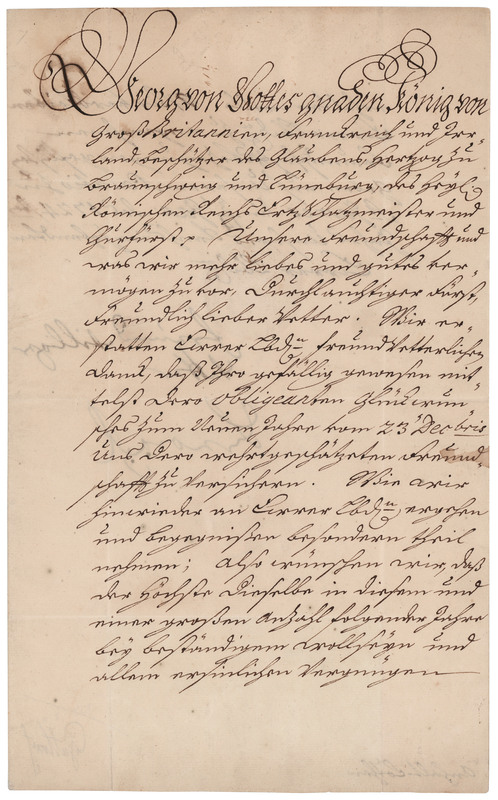 Georg von Gottes gnaden König von
Groß Britannien, Franckreich und Irr-
land, Beschützer des Glaubens, Hertzog zu
Braunschweig und Lüneburg, des Heyl.
Römischen Reichs Ertz Schatzmeister und
Churfürst p. Unsere Freundschafft und
was wir mehr liebes und gutes ver-
mögen zu vor, Durchlauchtiger Fürst,
freundlich lieber Vetter. Wir er-
statten Eurer Lbdn freundvetterlichen
Danck, daß Ihro gefällig gewesen mit-
telst Dero obligeanten Glückwun-
sches zum Neuen Jahre vom 23t Decbris
uns Dero wehrtgeschätzten Freund-
schafft zu versichern. Wie wir
hinwieder an Eurer Lbdn ergehen
und begegnißen besondern theil
nehmen; also wünschen wir, daß
der Höchste Dieselbe in diesem und
einer großen Anzahl folgender Jahre
bey beständigem wollseyn und
allem ersinnlichen Vergnügen